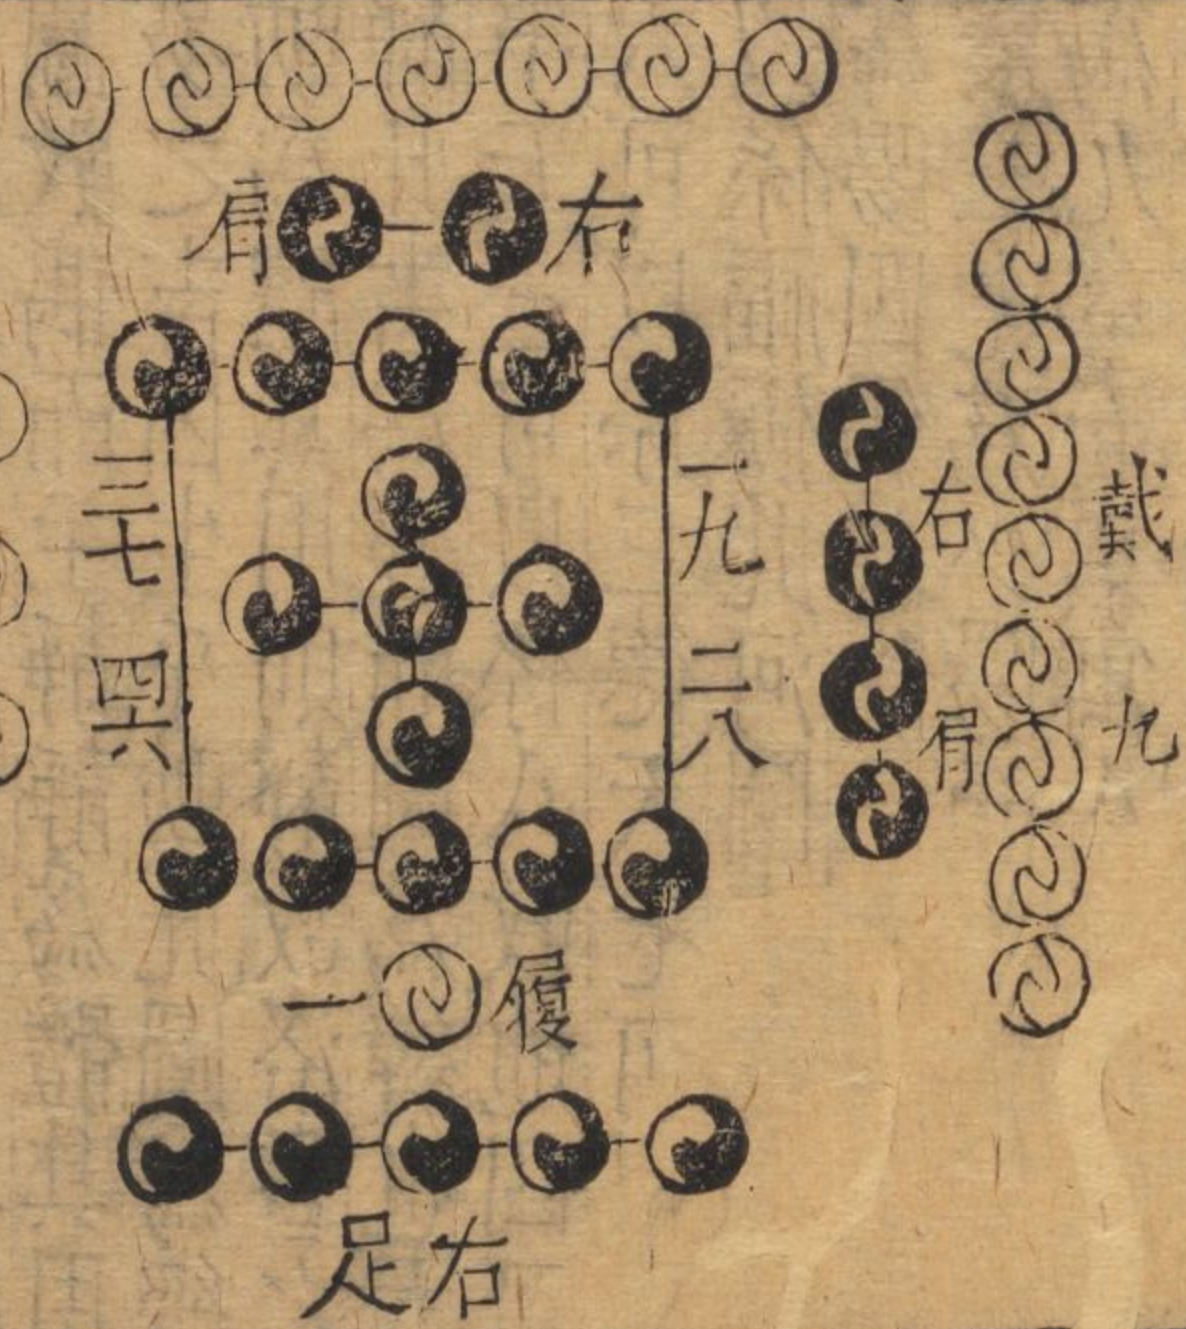 戴九
右肩
右肩
一九 二八
三七 四六
履一
右足